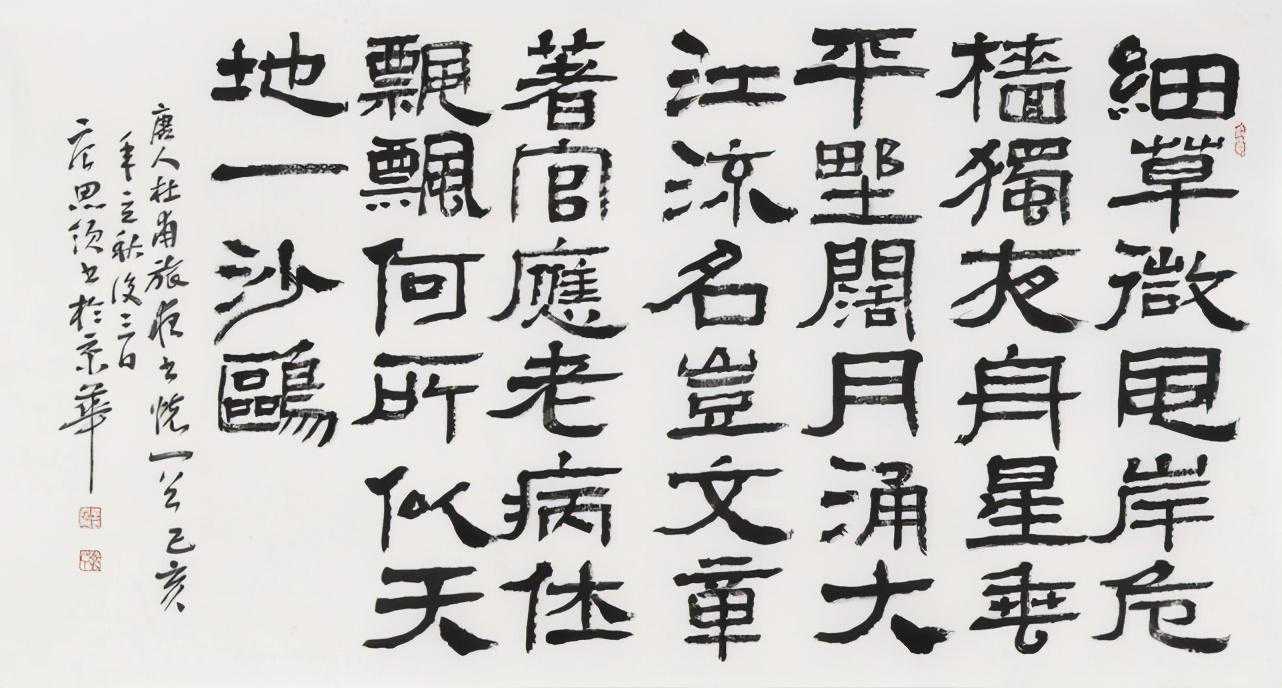 細草微風岸危
檣獨夜舟星垂
平野闊月涌大
江流名豈文章
著官應老病休
飄飄何所似天
地一沙鷗
唐人杜甫旅夜书懷一首己亥
年立秋後三日
思书於京華